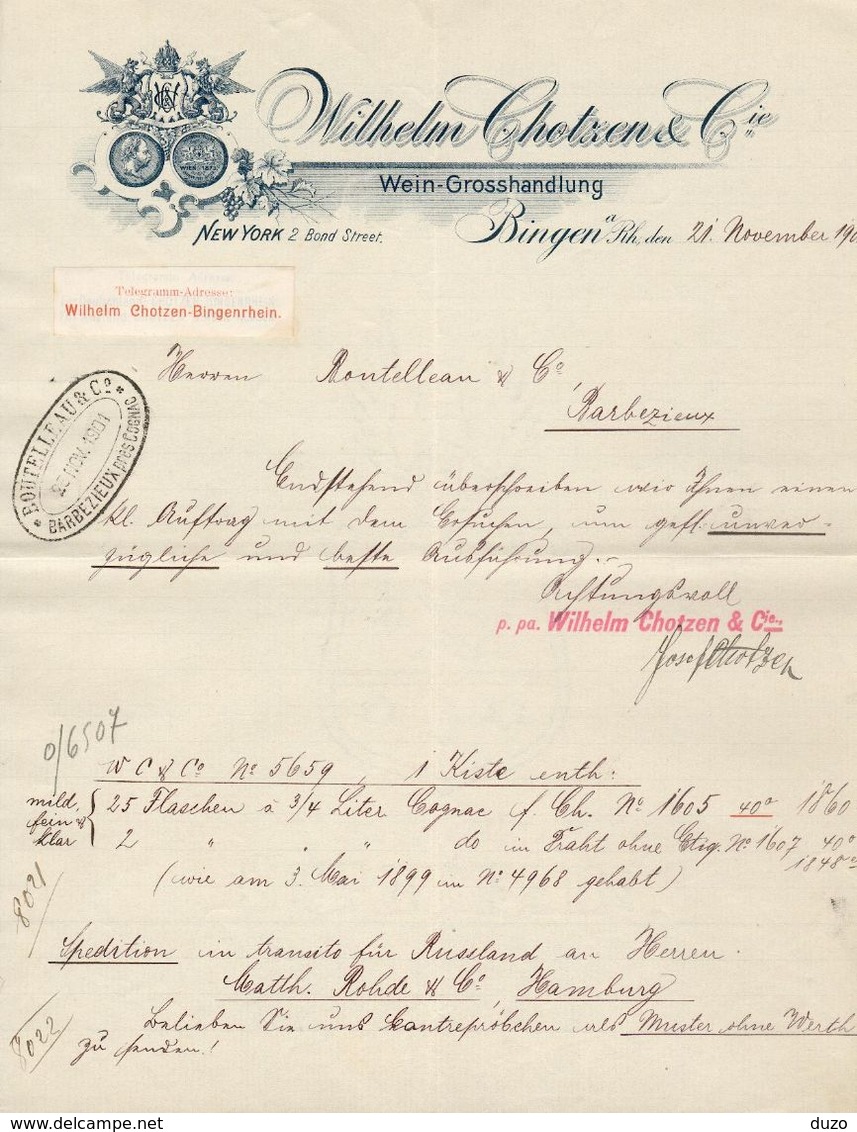 Wilhelm Chotzen & Cie
Wein-Grosshandlung
NEW YORK 2 Bond Street.
Bingen a Rh, den 21. November 190
WIEN 1873
Telegramm-Adresse:
Wilhelm Chotzen-Bingenrhein.
Herren Boutelleau & Co,
Barbezieux
BOUTELLEAU & Co
NOV. 1901
BARBEZIEUX PRÈS COGNAC
Endstehend überschreiben wir Ihnen einen
kl. Auftrag mit dem Ersuchen, um gefl. unver-
zügliche und beste Ausführung.-
Achtungsvoll
p. pa. Wilhelm Chotzen & Cie.,
Josef Chotzen
o/6507
W C & Co No 5659, 1 Kiste enth:
mild, fein & klar
25 Flaschen à 3/4 Liter Cognac f. Ch. No 1605 40o 1860
2 " " " do im Fraht ohne Etiq. No 1607 40o
1848er
(wie am 3. Mai 1899 im No 4968 gehabt)
8021
Spedition in transito für Russland an Herren
Matth. Rohde & Co, Hamburg
8022
Belieben Sie uns Contrepröbchen als Muster ohne Werth
zu senden!
duzo